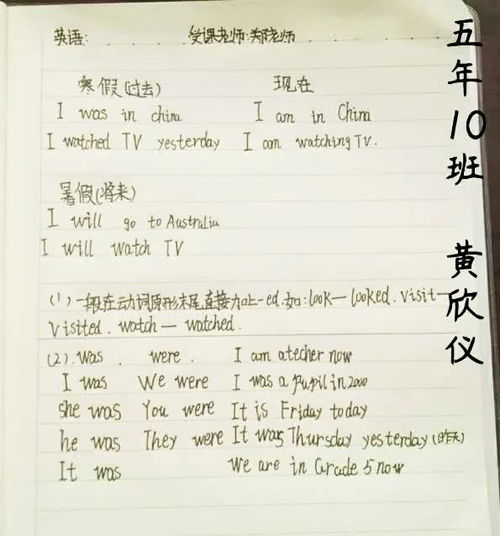 英语: 授课老师:郑晓老师
寒假(过去) 现在
I was in china I am in China
I watched TV yesterday I am watching TV.
暑假(将来)
I will go to Australia
I will watch TV
(1)一般在动词原形末尾直接加上-ed.如:look—looked.visit—
visited.watch—watched.
(2).was. were. I am atecher now
I was We were I was a pupil in 2000
she was You were It is Friday today
he was They were It was Thursday yesterday(昨天)
It was We are in Grade 5 now
五年10班 黄欣仪